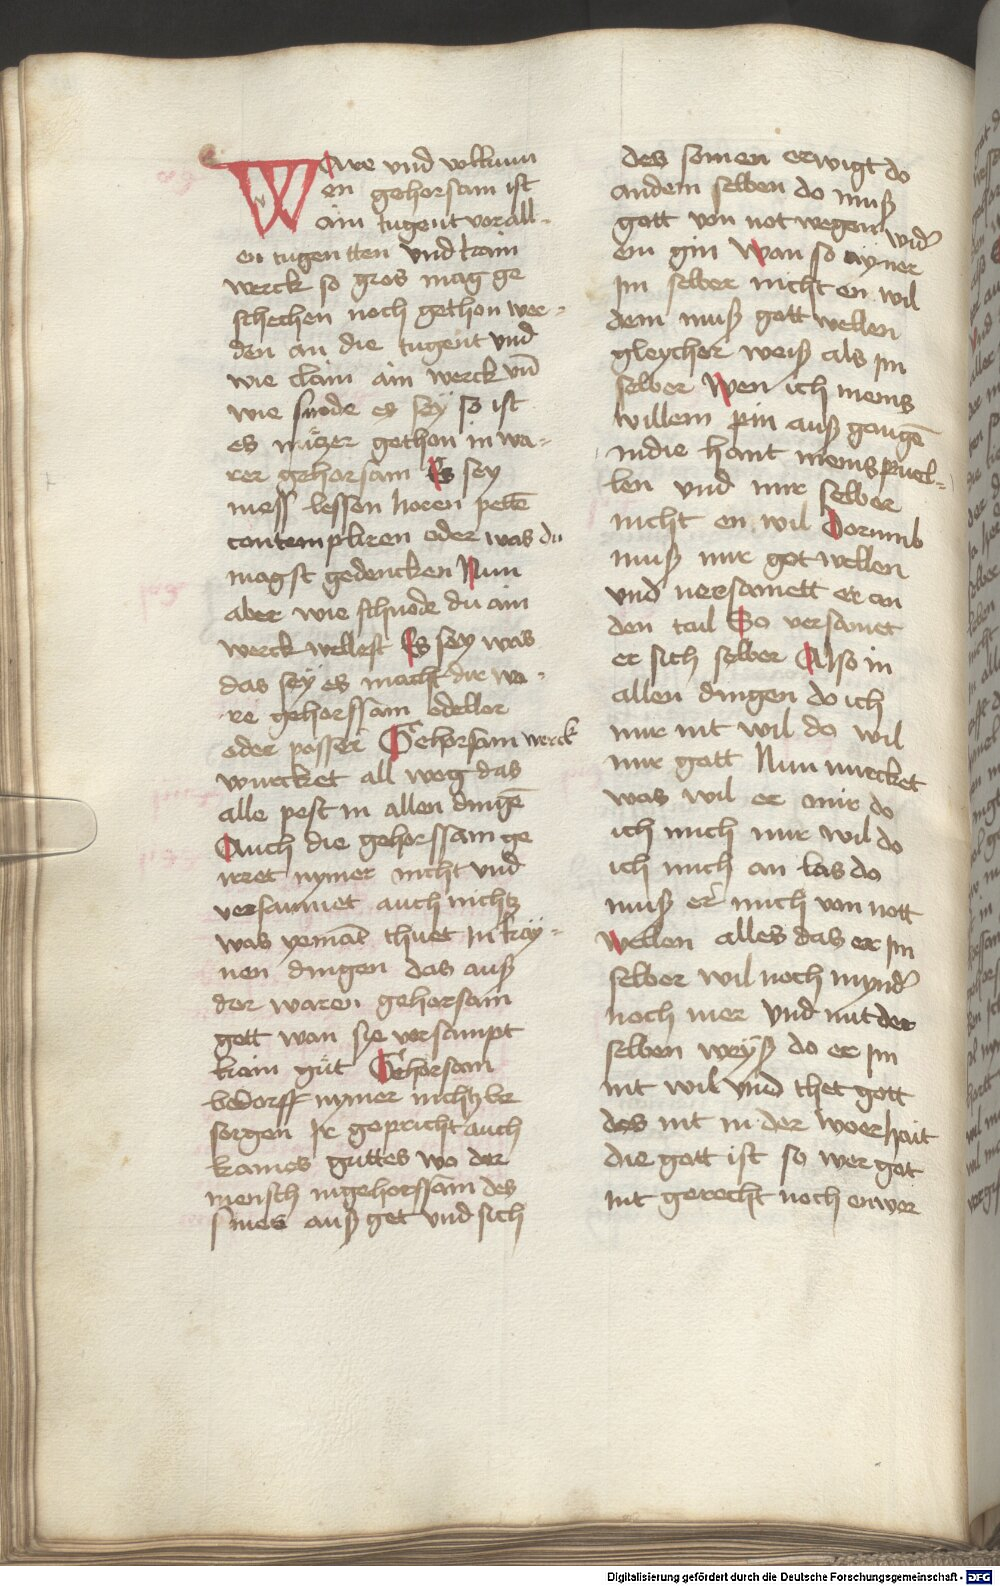 WAre vnd volkum
en gehorsam ist
ain tugent vor all-
en tugentten vnd kain
werck so gros mag ge
schechen noch gethon wer-
den an die tugent vnd
wie clain ain werck vn̄
wie snode es seÿ so ist
es nutzer gethon in wa-
rer gehorsam Es sey
mess lessen horen petē
contempliren oder was du
magst gedencken Num
aber wie schnode du ain
werck wellest Es sey was
das seÿ es macht dir wa-
re gehorssam edeller
oder posser Gehorsam werck
wurcket all weg das
alle pest in allen dingē
Auch die gehorssam ge
irret nymer nicht vnd
versaumet auch nichtz
was yemāt thuet In kaÿ-
nen dingen das auß
der waren gehorsam
gett wan sye versampt
kain gut Gehorsam
bedorff nymer nichtz be
sorgen Ir gepricht auch
kaines guttes wo der
mensch in gehorssam des
sines auß get vnd sich
des seinen erwigt do
an dem selben do muß
gott von not wegen wider
ein gin Wan so aÿner
Im selber nicht en wil
dem muß gott wellen
gleycher weiß als Im
selber Wen ich meins
willem pin auß gangē
in die hant meins pruel-
len vnd mir selber
nicht en wil Dorumb
muß mir got wellen
vnd versamett er an
den tail So versamet
er sich selber Also in
allen dingen do ich
mir nit wil do wil
mir gott Nun mircket
was wil er mir do
ich mich mir wil do
ich mich an las do
muß er mich von nott
wellen alles das er Im
selber wil noch mynder
noch mer Vnd mit der
selben weyß do er Im
nit wil vnd thet gott
des nit in der woerhait
die gott ist so wer got
nit gerecht noch enwer
Digitalisierung gefördert durch die Deutsche Forschungsgemeinschaft - DFG